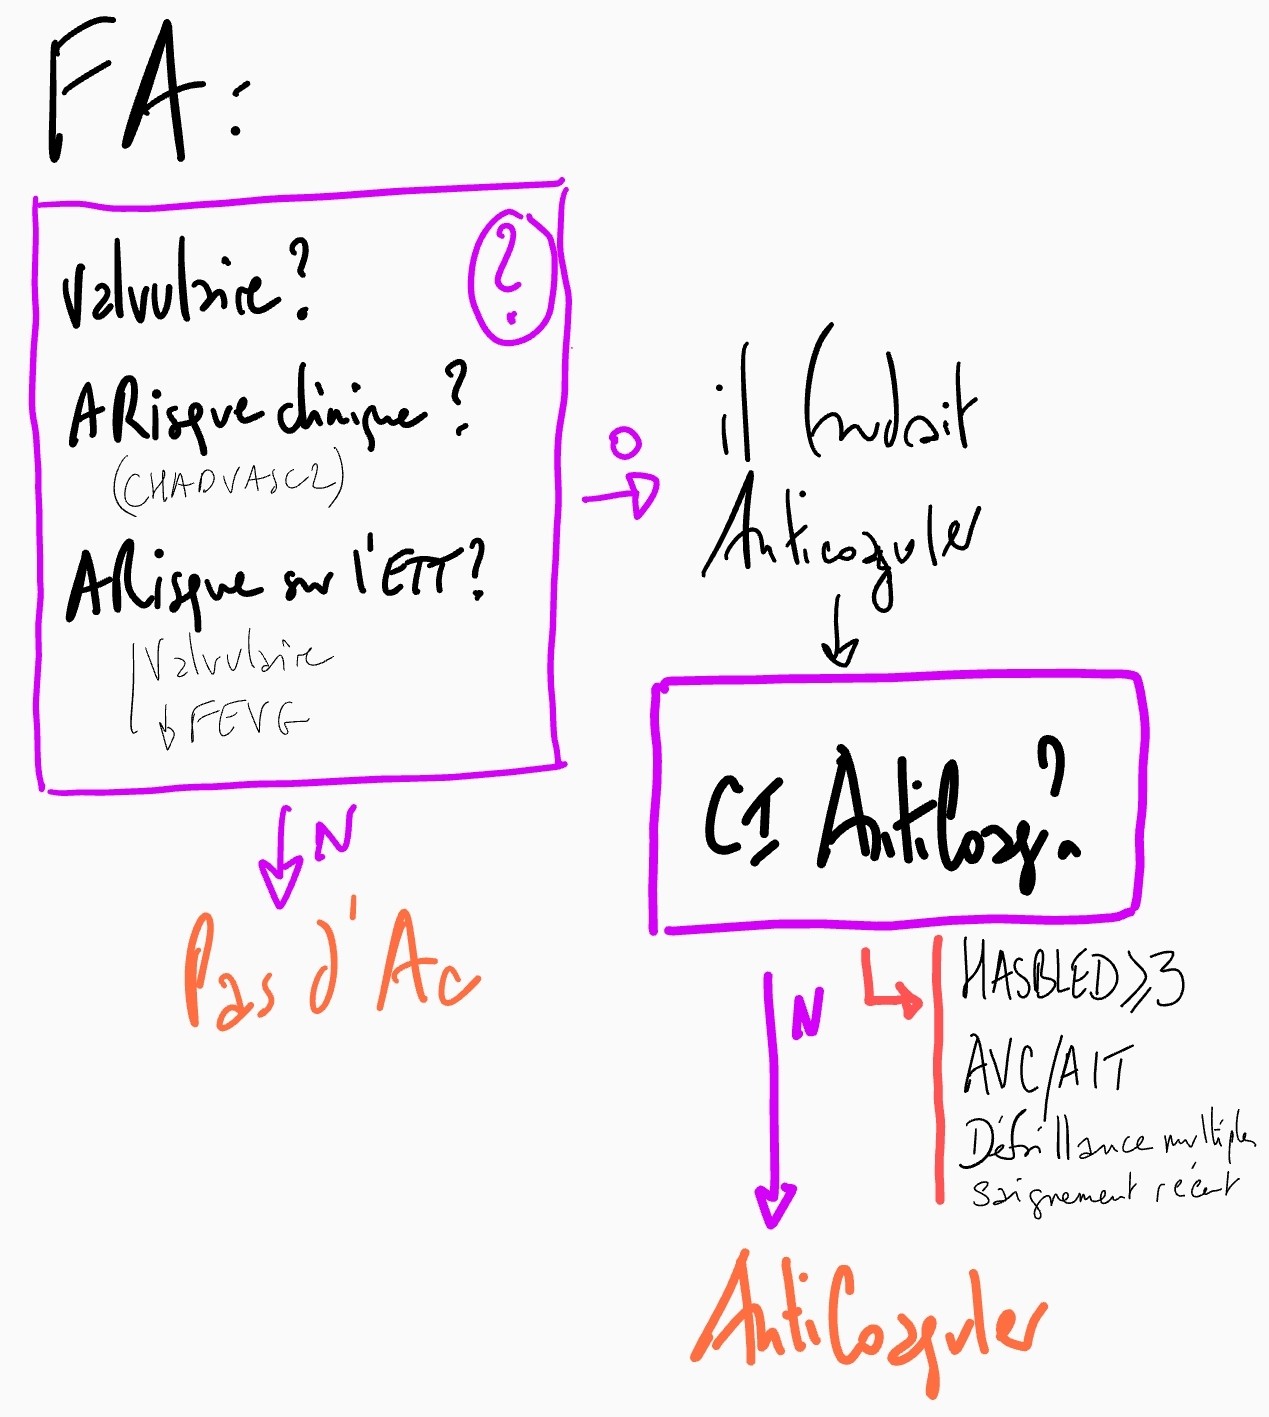 FA :
Valvulaire ?
?
A Risque clinique ?
(CHADVASC2)
A Risque sur l'ETT ?
Valvulaire
↓ FEVG
N
Pas d'Ac
O
il faudrait
Anticoaguler
CI AntiCoag. ?
HASBLED ≥ 3
AVC/AIT
Défaillance multiples
saignement récent
N
AntiCoaguler